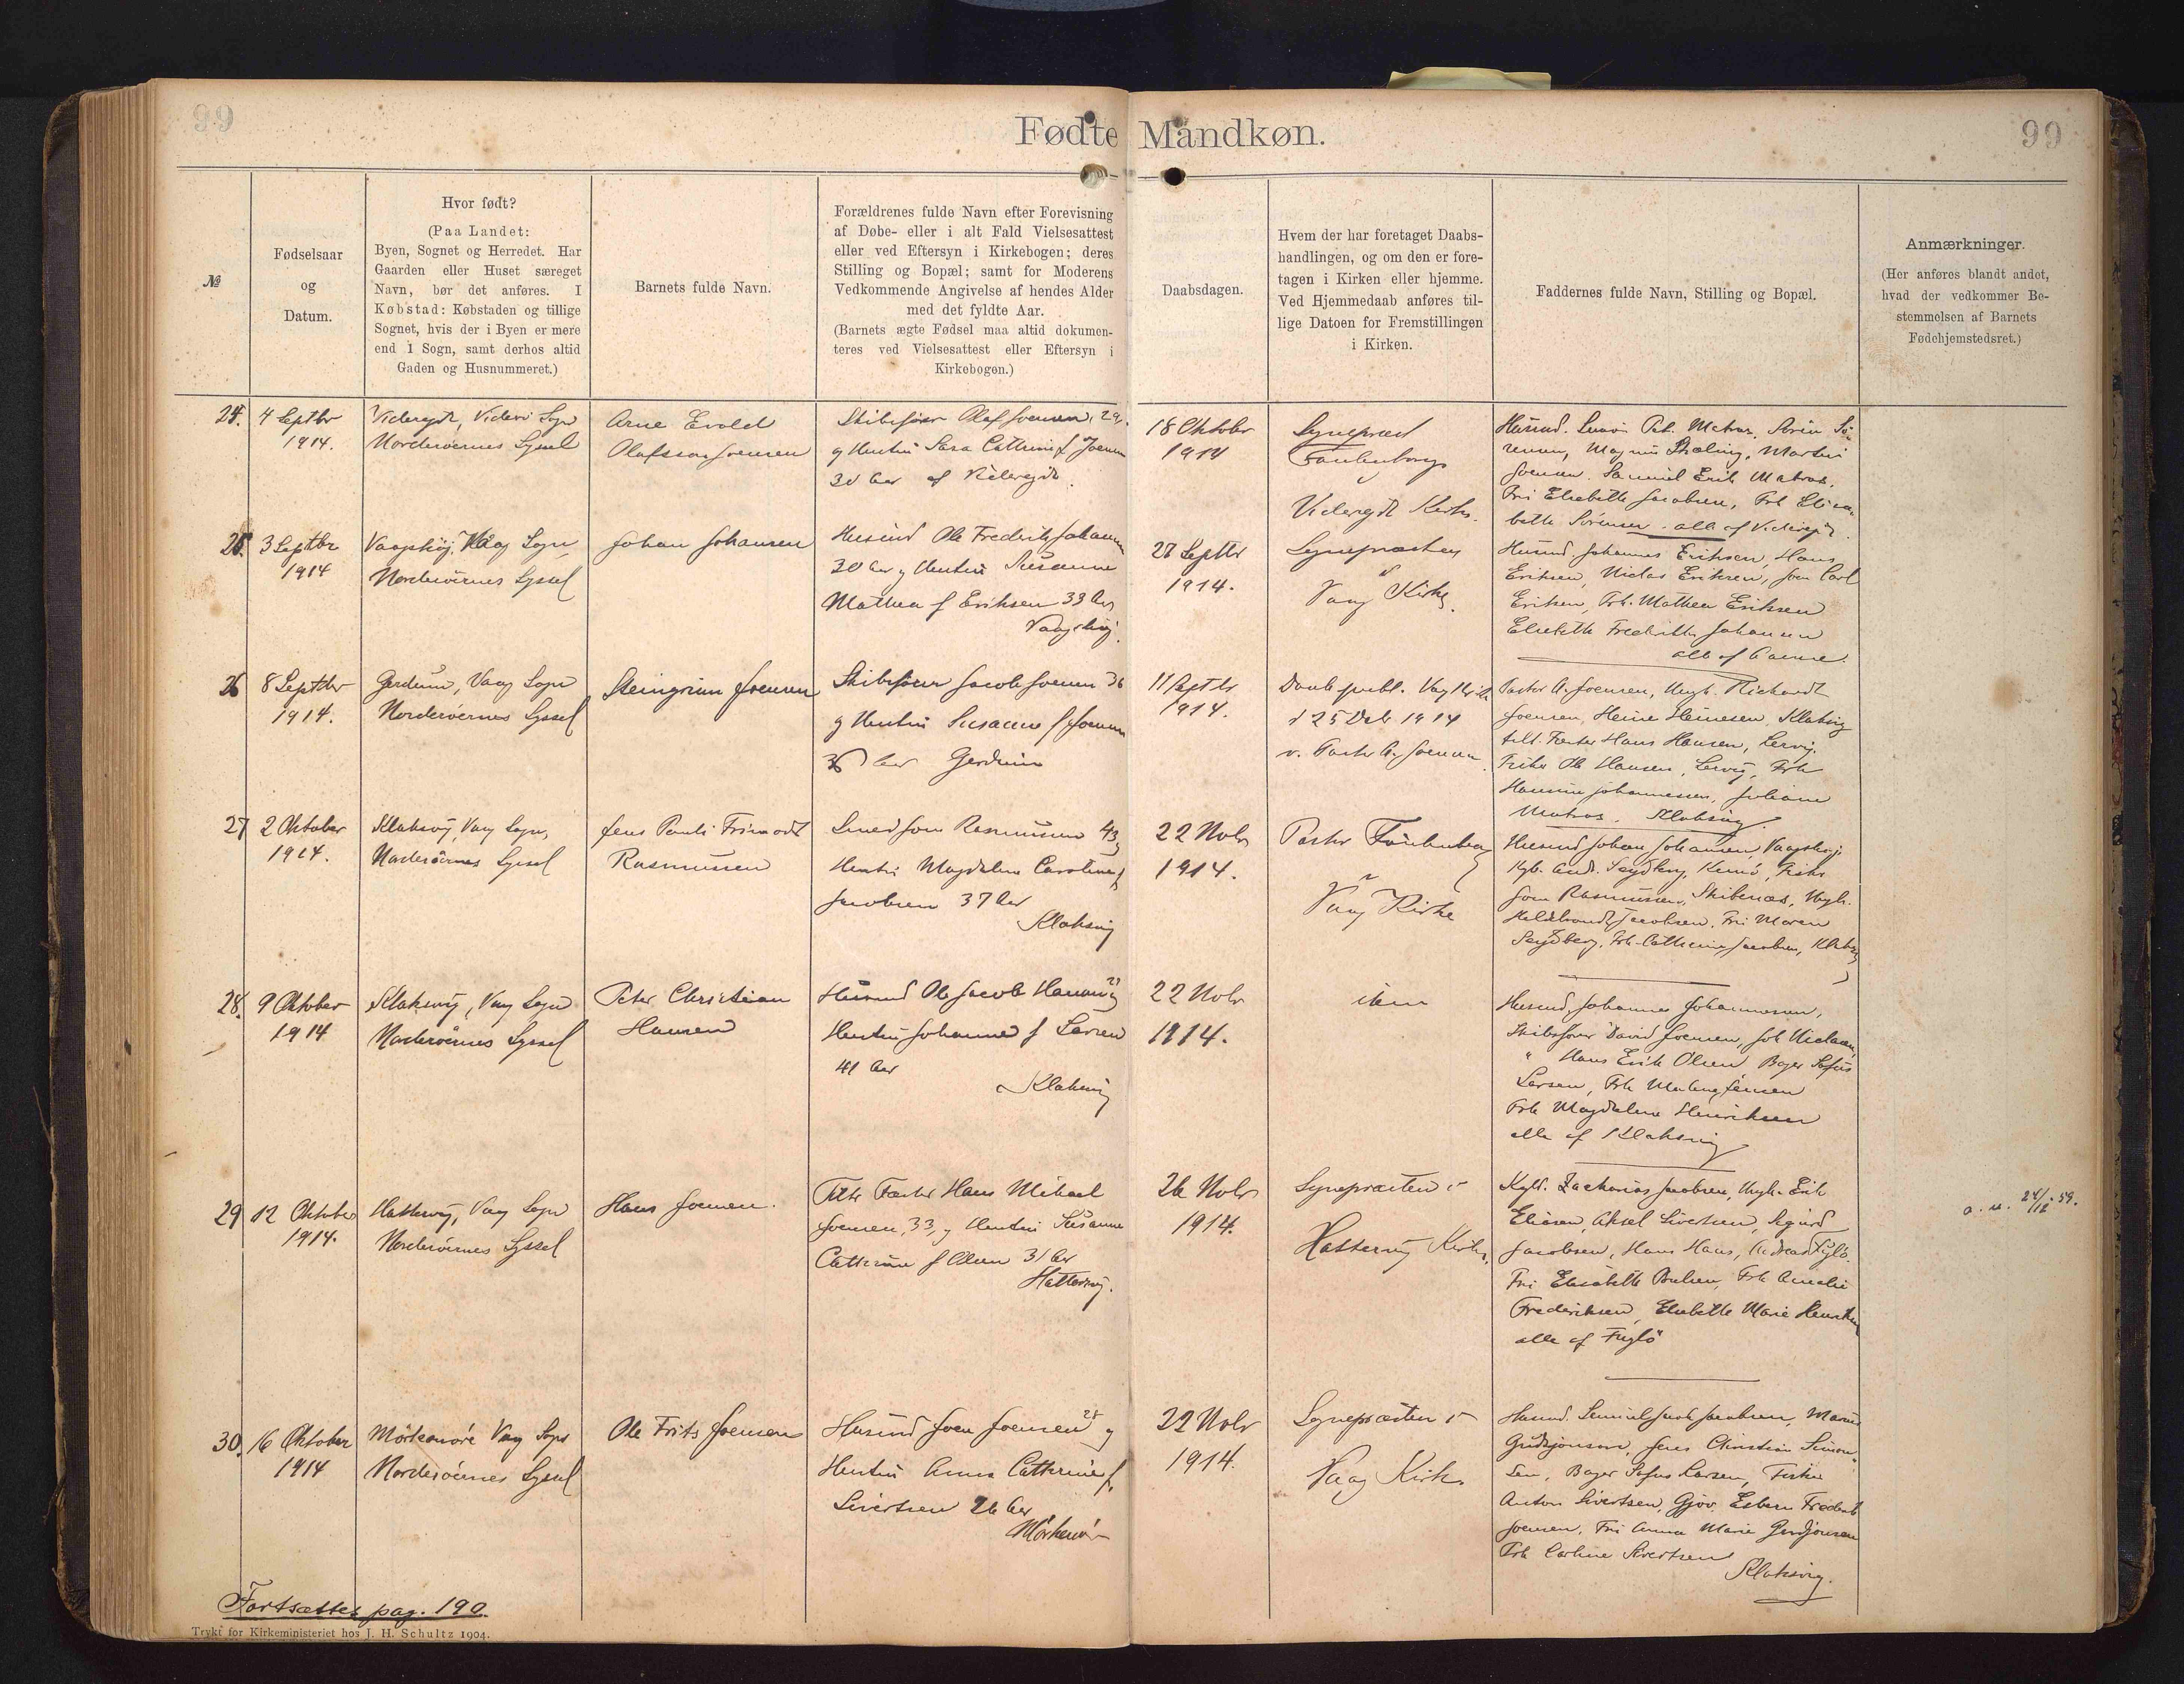 99
Fødte Mandkøn.
99
№
Fødselsaar
og
Datum.
Hvor født?
(Paa Landet:
Byen, Sognet og Herredet. Har
Gaarden eller Huset særeget
Navn, bør det anføres. I
Købstad: Købstaden og tillige
Sognet, hvis der i Byen er mere
end 1 Sogn, samt derhos altid
Gaden og Husnummeret.)
Barnets fulde Navn.
Forældrenes fulde Navn efter Forevisning
af Døbe- eller i alt Fald Vielsesattest
eller ved Eftersyn i Kirkebogen; deres
Stilling og Bopæl; samt for Moderens
Vedkommende Angivelse af hendes Alder
med det fyldte Aar.
(Barnets ægte Fødsel maa altid dokumen-
teres ved Vielsesattest eller Eftersyn i
Kirkebogen.)
Daabsdagen.
Hvem der har foretaget Daabs-
handlingen, og om den er fore-
tagen i Kirken eller hjemme.
Ved Hjemmedaab anføres til-
lige Datoen for Fremstillingen
i Kirken.
Faddernes fulde Navn, Stilling og Bopæl.
Anmærkninger.
(Her anføres blandt andet,
hvad der vedkommer Be-
stemmelsen af Barnets
Fødehjemstedsret.)
24.
4 Septbr
1914.
Videregde, Viderø Sogn
Norderøernes Syssel
Arne Evald
Olafsson Joensen
Skibsfører Olaf Joensen, 29,
og Hustru Sara Cathrine f. Joensen
30 Aar af Videregde.
18 Oktober
1914
Sognepræst
Videregde Kirke.
Husmd. Simon Pet. Matras,
Magnus Martin
Joensen, Samuel Erik Matras,
Fru Elsebeth Jacobsen, Frk Elisa-
beth Sørensen. alle af Videregde.
25.
3 Septbr
1914
Vaagshøj, Vaag Sogn
Norderøernes Syssel
Johan Johansen
Husmd Ole Frederik Johansen
30 Aar og Hustru Susanne
Mathea f Eriksen 33 Aar
Vaagshøj.
27 Septbr
1914.
Sognepræsten
i
Vaag Kirke.
Husmd. Johannes Eriksen, Hans
Eriksen, Niclas Eriksen, Joen Carl
Eriksen, Frk. Mathea Eriksen
Elsebeth Frederikke Johansen
26
8 Septbr
1914.
Gerdum, Vaag Sogn
Norderøernes Syssel
Steingrim Joensen
Skibsfører Jacob Joensen 36
og Hustru Susanne f Joensen
36 Aar Gerdum
11 Septbr
1914.
Daab publ. Vaag Kirke
d 25 Debr 1914
v. Pastor A. Joensen
Pastor A. Joensen, Ungk. Richardt
Joensen, Heine Heinesen, Klaksvig
Fæster Hans Hansen, Lervig.
Fisker Ole Hansen, Lervig, Frk
Hansine Johannessen, Juliane
Matras. Klaksvig.
27
2 Oktober
1914.
Klaksvig, Vaag Sogn,
Norderøernes Syssel
Jens Pauli Frimodt
Rasmussen
Smed Joen Rasmussen 43 og
Hustru Magdalene Caroline f
Jacobsen 37 Aar
Klaksvig
22 Nobr
1914.
Pastor
i
Vaag Kirke
Husmd Johan Johansen, Vaagshøj
Joen Rasmussen, Skibenæs, Ungk.
Hildebrandt Jacobsen, Fru Maren
28.
9 Oktober
1914
Klaksvig, Vaag Sogn
Norderøernes Syssel
Peter Christian
Hansen
Husmd Ole Jacob Hansen og
Hustru Johanne f Larsen
41 Aar
Klaksvig
22 Nobr
1914.
idem
Husmd. Johannes Johannessen,
Skibsfører David Joensen, Joh Niclasen,
" Hans Erik Olsen Bager Sofus
Larsen, Frk Joensen
Frk Magdalene Henriksen
alle af Klaksvig
29
12 Oktober
1914.
Hattervig, Vaag Sogn
Norderøernes Syssel
Hans Joensen.
Fæster Hans Mikael
Joensen, 33, og Hustru Susanne
Cathrine f Olsen 31 Aar
Hattervig.
26 Nobr
1914.
Sognepræsten i
Hattervig Kirke.
Zacharias Jacobsen, Ungk. Erik
Eliasen, Aksel Sivertsen, Sigurd
Jacobsen, Hans Hans, Andreas Fuglø.
Fru Elisabeth Frk Amalie
Frederiksen, Elsebeth Marie
alle af Fuglø
a. u. 24/12-59.
30.
16 Oktober
1914
Mörkenøre Vaag Sogn
Norderøernes Syssel
Ole Frits Joensen
Husmd Joen Joensen 28 og
Hustru Anna Cathrine f.
Sivertsen 26 Aar
Mörkenøre
22 Nobr
1914.
Sognepræsten i
Vaag Kirke
Husmd. Samuel Jacob Jacobsen,
Gudjonsson, Jens Christian Simon-
sen, Bager Sofus Larsen, Fisker
Anton Sivertsen, Gjov, Esbern Frederik
Joensen, Fru Anna Marie Gudjonsen
Frk Carline Sivertsen
Klaksvig.
Fortsættes pag. 190.
Trykt for Kirkeministeriet hos J. H. Schultz 1904.